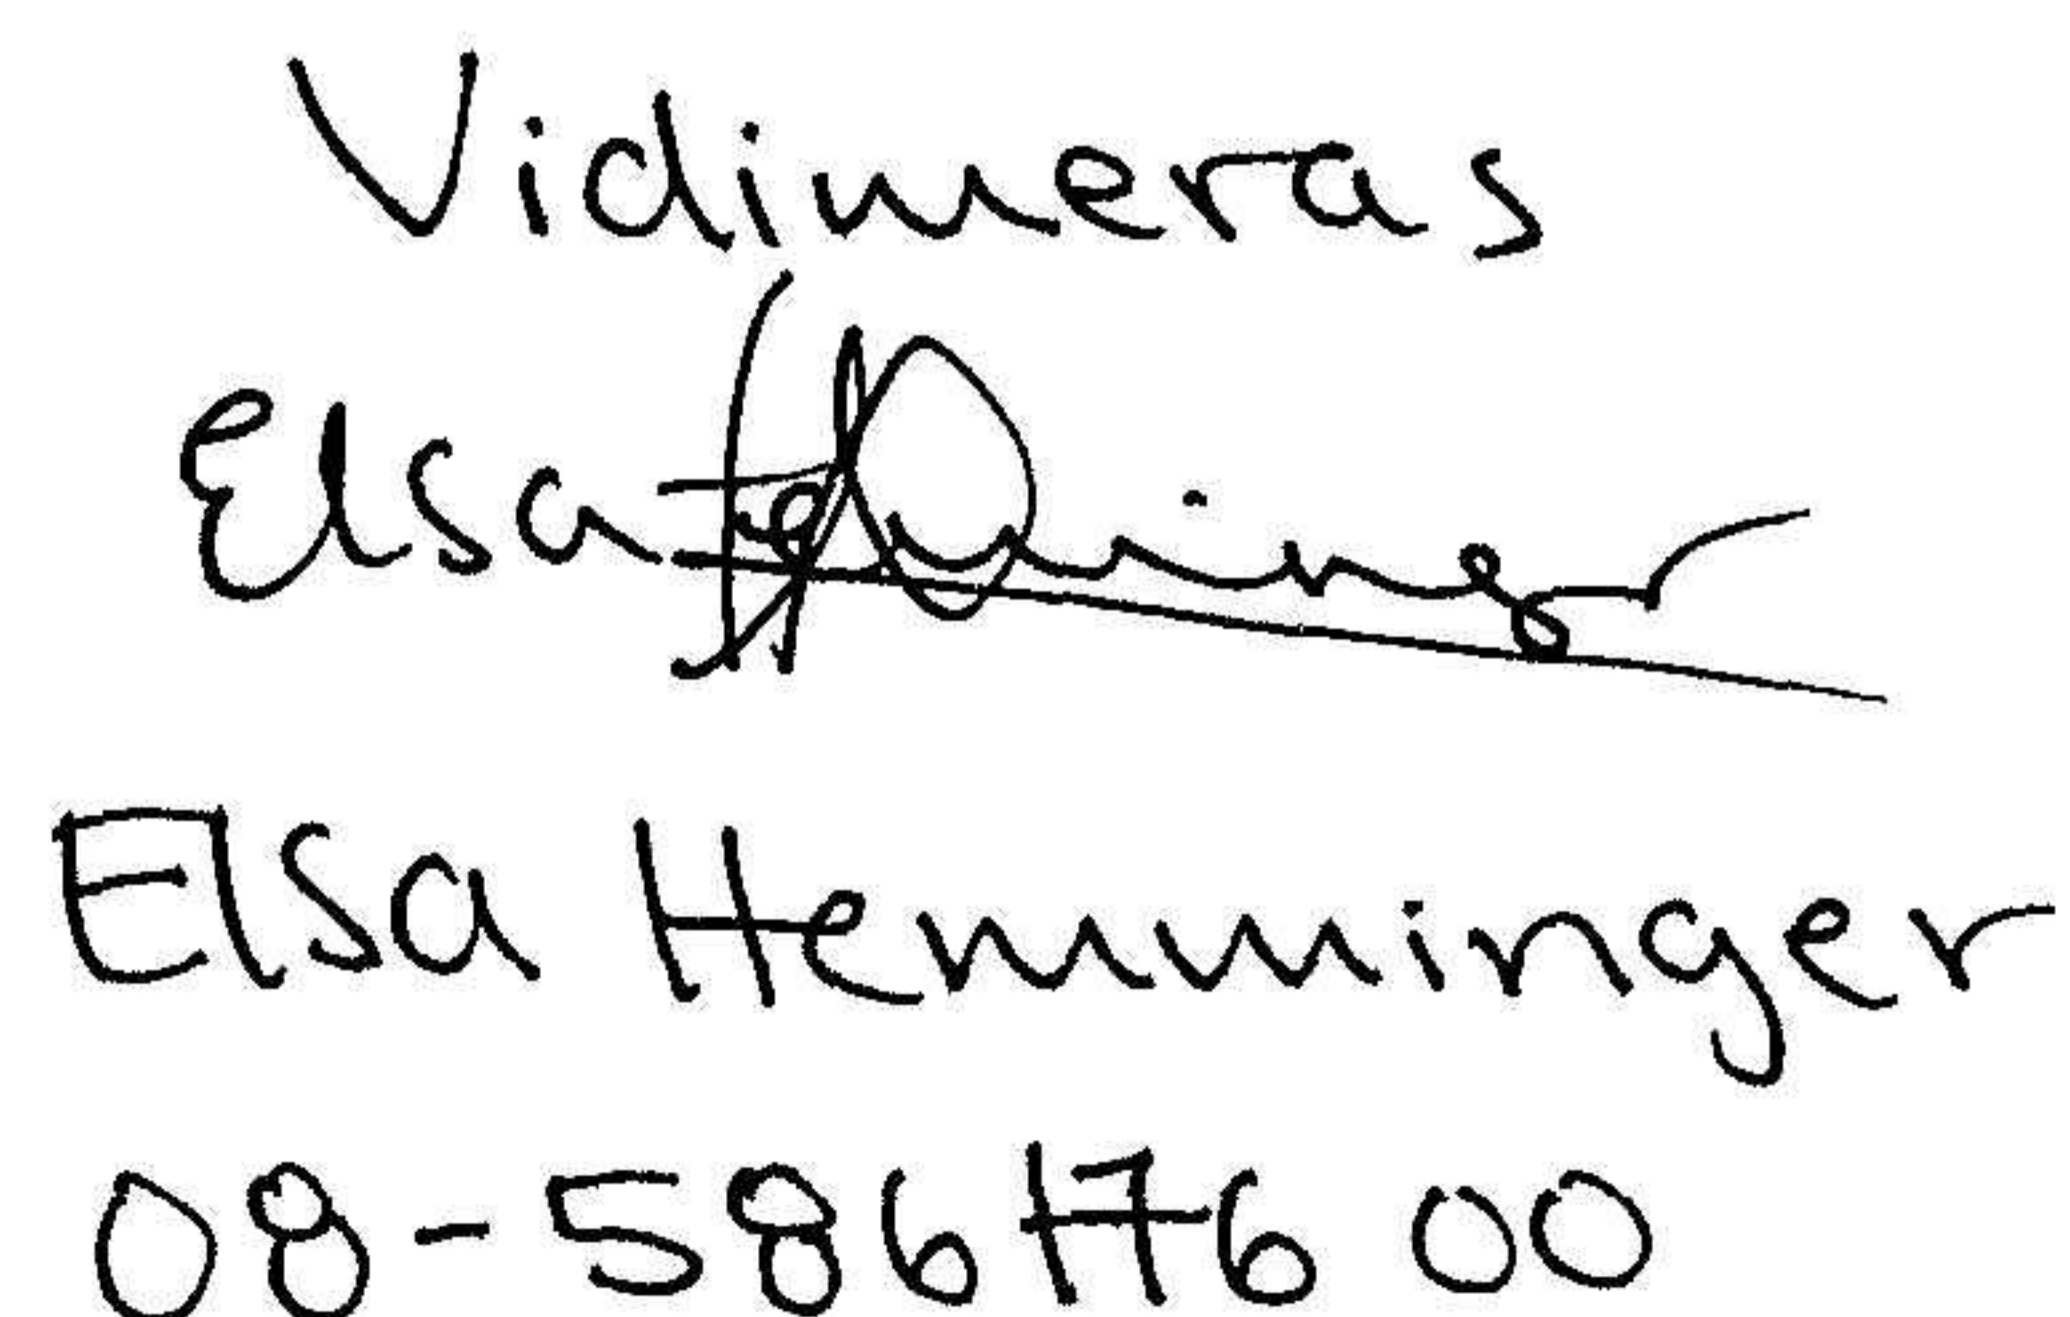 Vidimeras
Elsa Hemminger
Elsa Hemminger
08-586 176 00